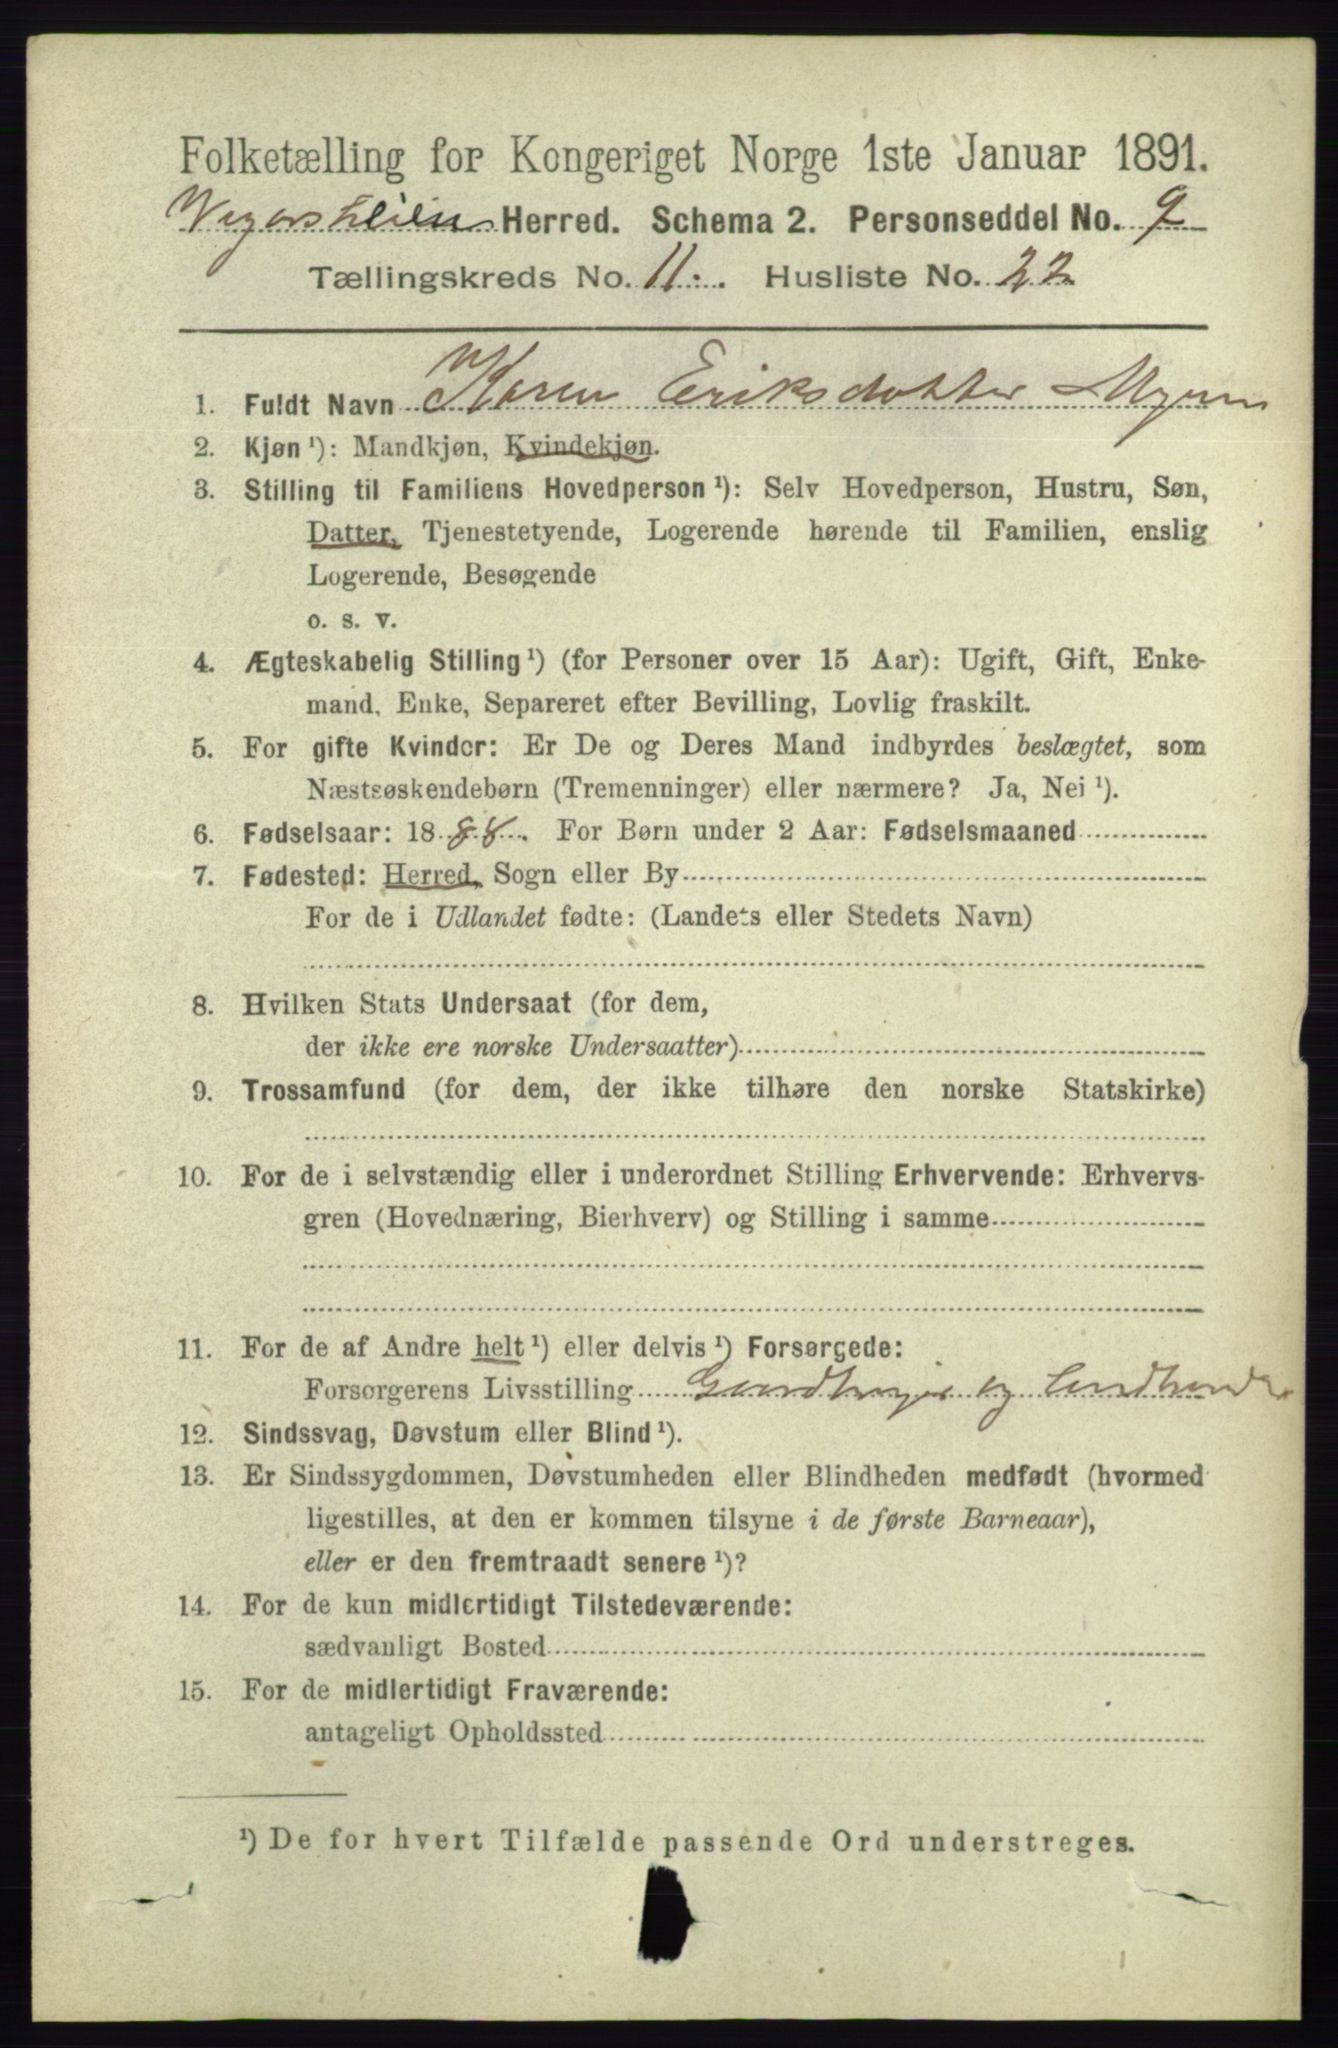 Folketælling for Kongeriget Norge 1ste Januar 1891.
Vegorsheien Herred. Schema 2. Personseddel No. 9
Tællingskreds No. 11. Husliste No. 22
1. Fuldt Navn Karen Eriksdatter Myren
2. Kjøn ¹): Mandkjøn, Kvindekjøn.
3. Stilling til Familiens Hovedperson ¹): Selv Hovedperson, Hustru, Søn,
Datter, Tjenestetyende, Logerende hørende til Familien, enslig
Logerende, Besøgende
o. s. v.
4. Ægteskabelig Stilling ¹) (for Personer over 15 Aar): Ugift, Gift, Enke-
mand, Enke, Separeret efter Bevilling, Lovlig fraskilt.
5. For gifte Kvinder: Er De og Deres Mand indbyrdes beslægtet, som
Næstsøskendebørn (Tremenninger) eller nærmere? Ja, Nei ¹).
6. Fødselsaar: 1888. For Børn under 2 Aar: Fødselsmaaned
7. Fødested: Herred, Sogn eller By
For de i Udlandet fødte: (Landets eller Stedets Navn)
8. Hvilken Stats Undersaat (for dem,
der ikke ere norske Undersaatter)
9. Trossamfund (for dem, der ikke tilhøre den norske Statskirke)
10. For de i selvstændig eller i underordnet Stilling Erhvervende: Erhvervs-
gren (Hovednæring, Bierhverv) og Stilling i samme
11. For de af Andre helt ¹) eller delvis ¹) Forsørgede:
Forsørgerens Livsstilling og
12. Sindssvag, Døvstum eller Blind ¹).
13. Er Sindssygdommen, Døvstumheden eller Blindheden medfødt (hvormed
ligestilles, at den er kommen tilsyne i de første Barneaar),
eller er den fremtraadt senere ¹)?
14. For de kun midlertidigt Tilstedeværende:
sædvanligt Bosted
15. For de midlertidigt Fraværende:
antageligt Opholdssted
¹) De for hvert Tilfælde passende Ord understreges.